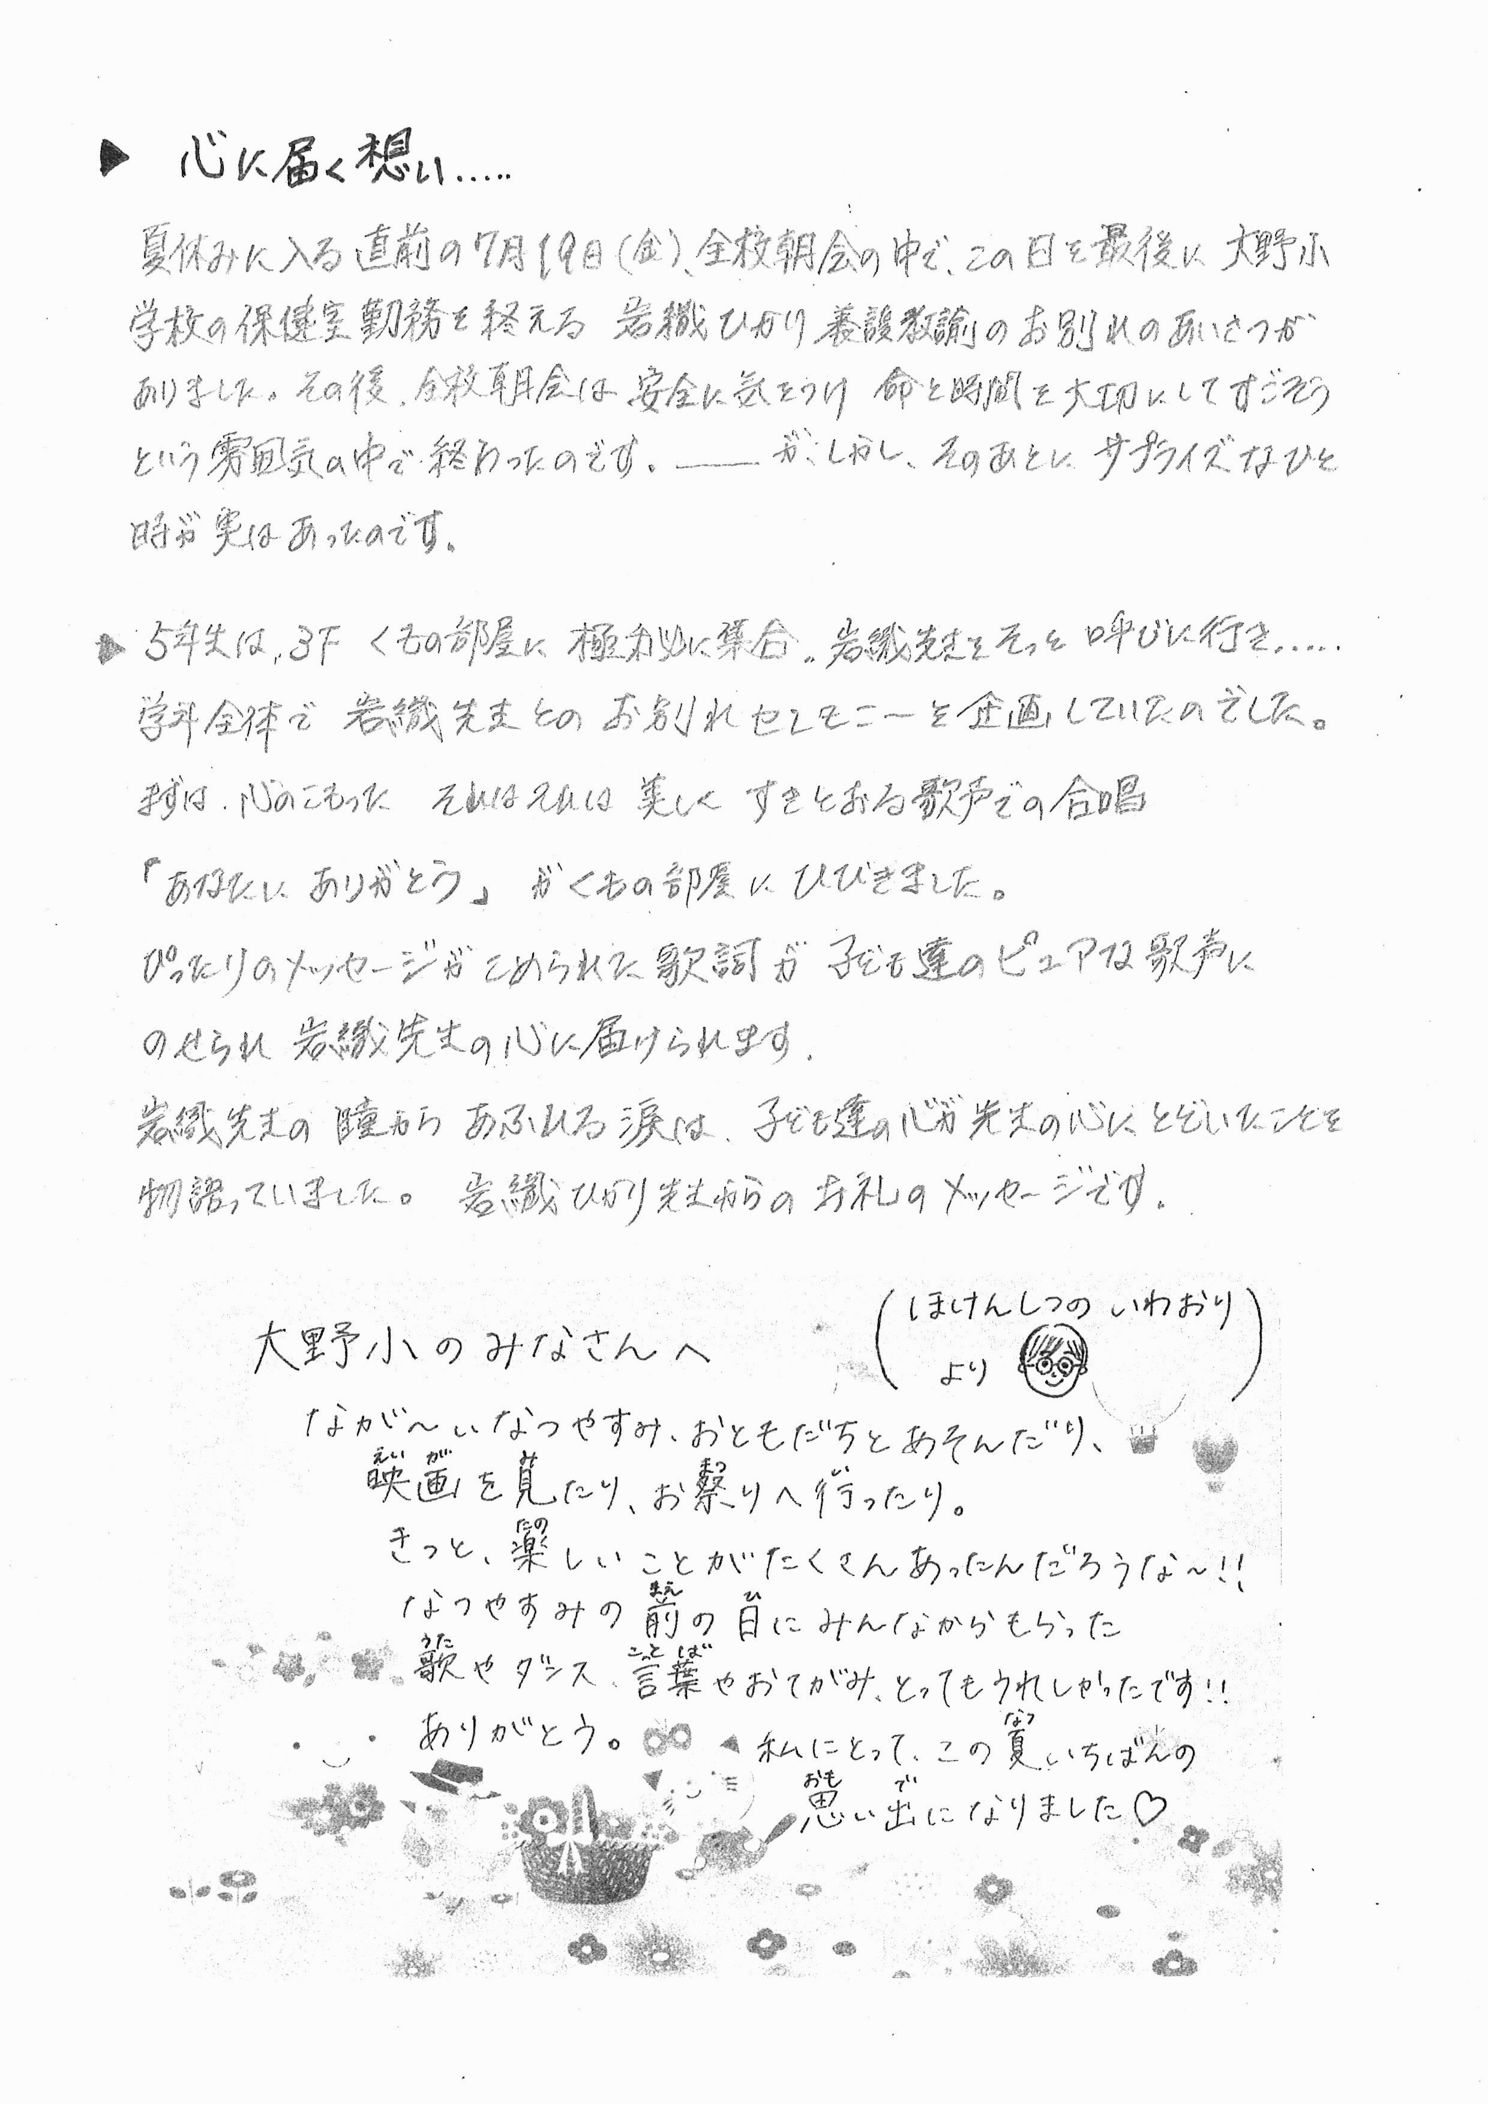 ▶ 心に届く想い.....
夏休みに入る直前の7月19日(金)、全校朝会の中で、この日を最後に 大野小
学校の保健室勤務を終える 岩織ひかり養護教諭のお別れのあいさつが
ありました。その後、全校朝会は 安全に気をつけ 命と時間を大切にしてすごそう
という雰囲気の中で終わったのです。――が、しかし、そのあとに サプライズなひと
時が実はあったのです。
▶ 5年生は、3F くもの部屋に 極秘に集合。岩織先生をそっと 呼びに行き.....
学年全体で 岩織先生とのお別れセレモニーを企画していたのでした。
まずは、心のこもった それはそれは 美しく すきとおる歌声での合唱
「あなたに ありがとう」 がくもの部屋にひびきました。
ぴったりのメッセージがこめられた歌詞が 子ども達のピュアな歌声に
のせられ 岩織先生の心に届けられます.
岩織先生の瞳から あふれる涙は、子ども達の心が先生の心にとどいたことを
物語っていました。 岩織ひかり先生からのお礼のメッセージです.
(ほけんしつの いわおり
より)
大野小のみなさんへ
なが〜いなつやすみ、おともだちとあそんだり、
えい が み まつ い
映画を見たり、お祭りへ行ったり。
たの
きっと、楽しいことがたくさんあったんだろうな〜!!
まえ ひ
なつやすみの前の日にみんなからもらった
うた こと ば
歌やダンス、言葉やおてがみ、とってもうれしかったです!!
ありがとう。
なつ
私にとって、この夏いちばんの
おも で
思い出になりました♡